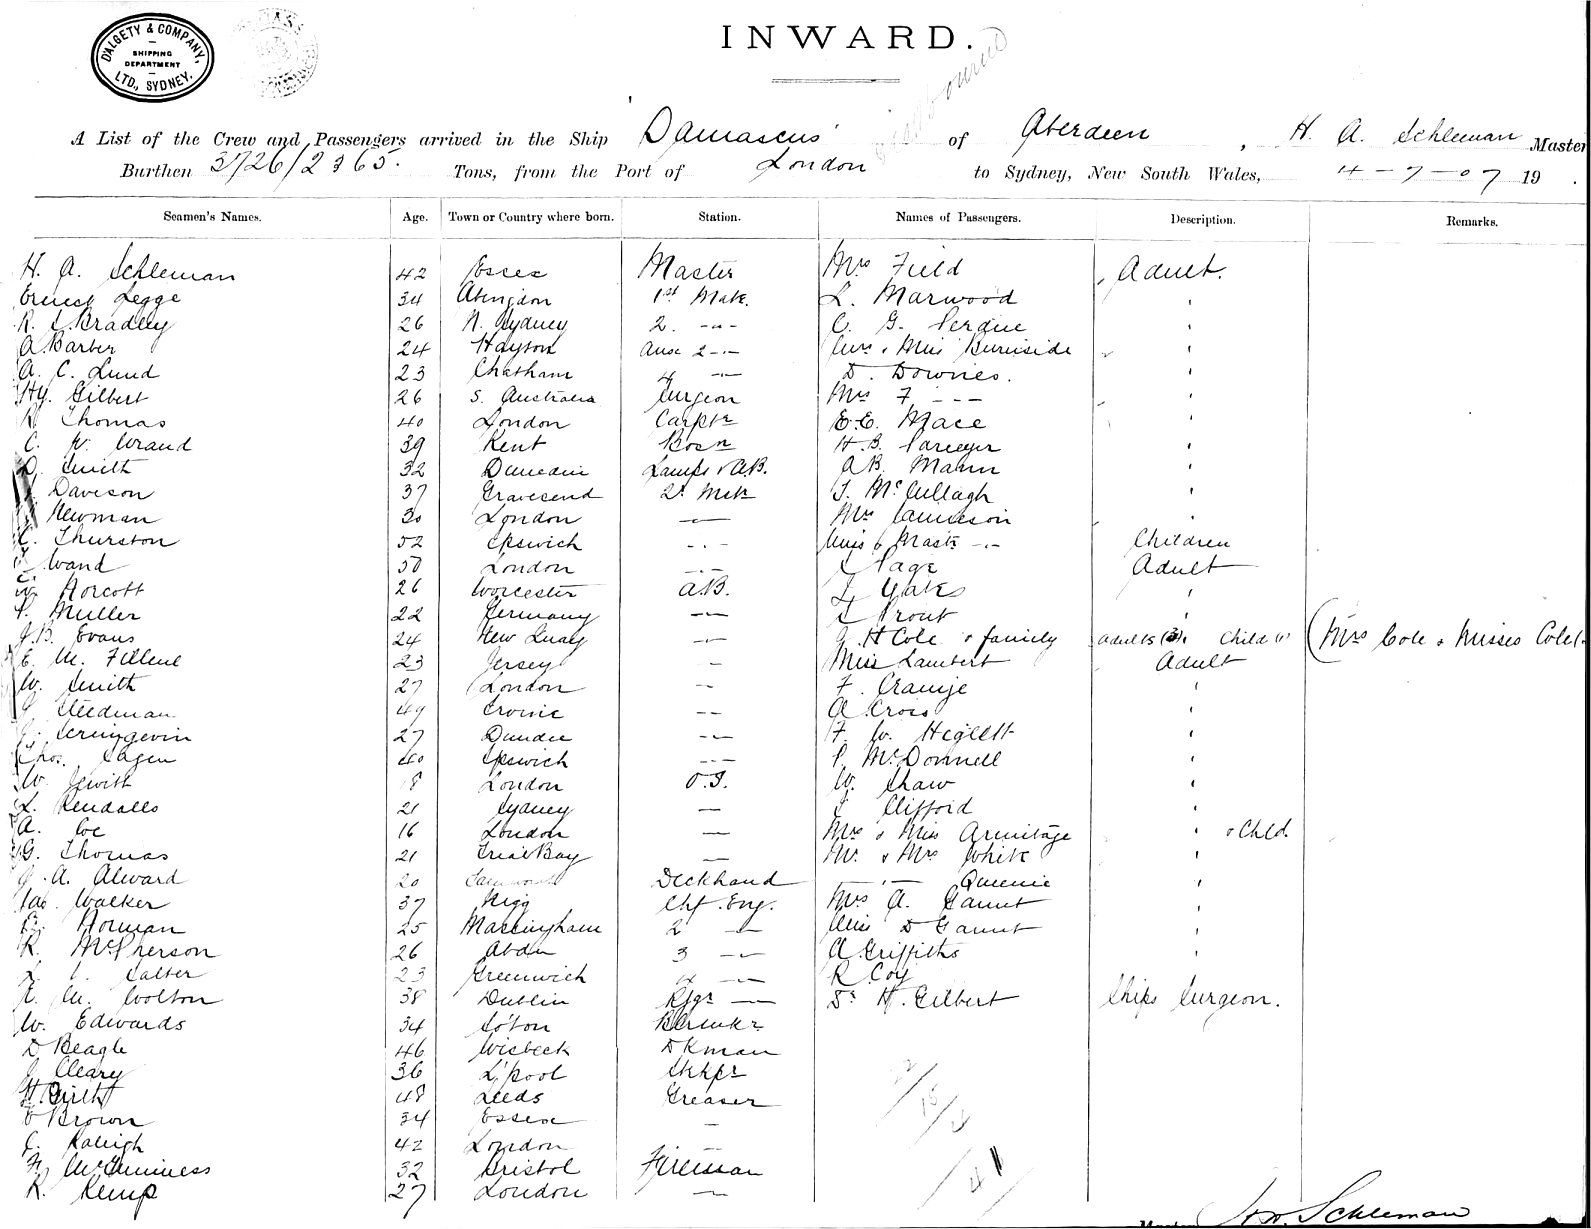 DALGETY & COMPANY, LTD., SYDNEY.
SHIPPING DEPARTMENT
INWARD.
A List of the Crew and Passengers arrived in the Ship Damascus of Aberdeen, H. A. Schleman Master
Burthen 3726/2365. Tons, from the Port of London to Sydney, New South Wales, 4-7-07 19 .
Seamen's Names. Age. Town or Country where born. Station. Names of Passengers. Description. Remarks.
H. A. Schleman 42 Essex Master Mrs Field Adult.
Ernest Legge 34 Abingdon 1st Mate. L. Marwood "
R. S. Bradley 26 N. Sydney 2. -"- C. G. Perdue "
A. Barber 24 Hayton 2 -"- & Miss Burniside "
A. C. Lund 23 Chatham 4 -"- D. Downes. "
Hy. Gilbert 26 S. Australia Surgeon Mrs F - - - "
R. Thomas 40 London Carptr E. E. Mace "
C. W. 39 Kent Bosn H. B. "
D. Smith 32 Dunedin Lamps & A.B. A B. Mann "
Davison 37 Gravesend 2d Mate T. McCullagh "
Newman 30 London -"- Mrs Jamieson "
C. Thurston 52 Ipswich -"- Miss & Mastr -"- Children
Wand 50 London -"- Page Adult
Norcott 26 Worcester A.B. Yates "
P. Muller 22 Germany -"- Prout "
J. B. Evans 24 New Quay -"- J. H Cole & family Adults (3), Child (1) (Mrs Cole & Misses Cole
E. M. Filleul 23 Jersey -- Miss Lambert Adult
W. Smith 27 London -- F. "
J Steedman 49 Irvine -- A Cross "
J. Scrimgevin 27 Dundee -- F. W. Higlett "
Thos. Sagen 40 Ipswich -"- P. McDonnell "
W. Jewitt 18 London O.S. W. Shaw "
L. Kendalls 21 Sydney -- Clifford "
A. Coe 16 London -- Mrs & Miss Armitage " & Chld.
G. Thomas 21 Trial Bay -- Mr. & Mrs White "
J. A. Alward 20 Deckhand -"- Queenie "
Jas. Walker 37 Rigg Chf. Eng. Mrs A. Gamut "
Norman 25 Massingham 2 -"- Miss D Gamut "
R. McPherson 26 Abdn 3 -"- A Griffiths "
Salter 23 Greenwich 4 -"- R Coy
E. M. Wolton 38 Dublin Rfgr -- Dr H. Gilbert Ships Surgeon.
W. Edwards 34 So'ton
D Beagle 46 Wisbeck Dkman
J Cleary 36 L'pool Stkpr
H. Firth 48 Leeds Greaser
E Brown 34 Essex -
C. Raleigh 42 London -
F. McGuiness 32 Bristol Fireman
R. Kemp 27 London --
22 / 15 / 4 / 41
H. A. Schleman